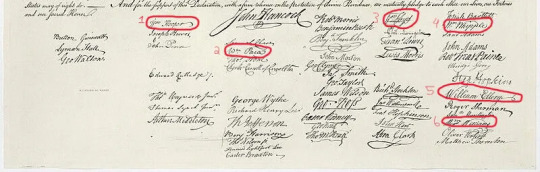 And for the support of this Declaration, with a firm reliance on the Protection of divine Providence, we mutually pledge to each other our Lives, our Fortunes
and our sacred Honor.
John Hancock
1
Wm Hooper
Joseph Hewes,
John Penn
Button Gwinnett
Lyman Hall
Geo Walton.
Edward Rutledge.
Thos Heyward Junr.
Thomas Lynch Junr.
Arthur Middleton
2
Samuel Chase
Wm Paca
Thos Stone
Charles Carroll of Carrollton
George Wythe
Richard Henry Lee
Th Jefferson
Benj Harrison
Thos Nelson jr.
Francis Lightfoot Lee
Carter Braxton
Robt Morris
Benjamin Rush
Benj. Franklin
John Morton
Geo Clymer
Jas. Smith
Geo. Taylor
James Wilson
Geo. Ross
Caesar Rodney
Geo Read
Tho M:Kean
3
Lewis Morris
Richd. Stockton
Jno Witherspoon
Fras. Hopkinson
John Hart
Abra Clark
4
Josiah Bartlett
Wm Whipple
Saml Adams
John Adams
Robt Treat Paine
Elbridge Gerry
Step. Hopkins
5
William Ellery
Roger Sherman
6
Wm. Williams
Oliver Wolcott
Matthew Thornton